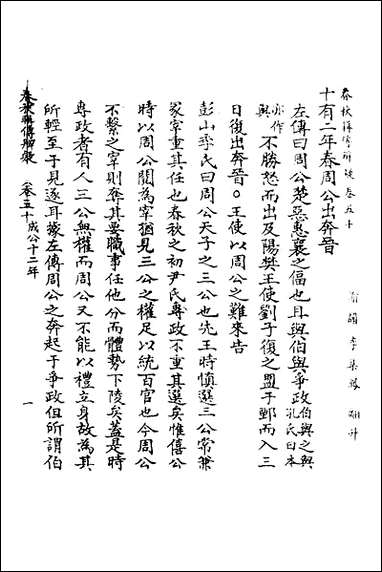 春秋輯傳辨疑卷五十
明 李集鳳 翽升
十有二年春周公出奔晉
左傳曰周公楚惡惠襄之偪也且與伯與爭政伯與之與孔氏曰本
亦作輿不勝怒而出及陽樊王使劉子復之盟于鄄而入三
日復出奔晉○王使以周公之難來告
彭山季氏曰周公天子之三公也先王時慎選三公常兼
冢宰重其任也春秋之初尹氏專政不重其選矣惟僖公
時以周公閱為宰猶見三公之權足以統百官也今周公
不繫之宰則奪其要職事任他分而體勢下陵矣蓋是時
專政者有人三公無權而周公又不能以禮立身故為其
所輕至于見逐耳豪左傳周公之奔起于爭政但所謂伯
春秋輯傳辨疑 卷五十 成公十二年 一